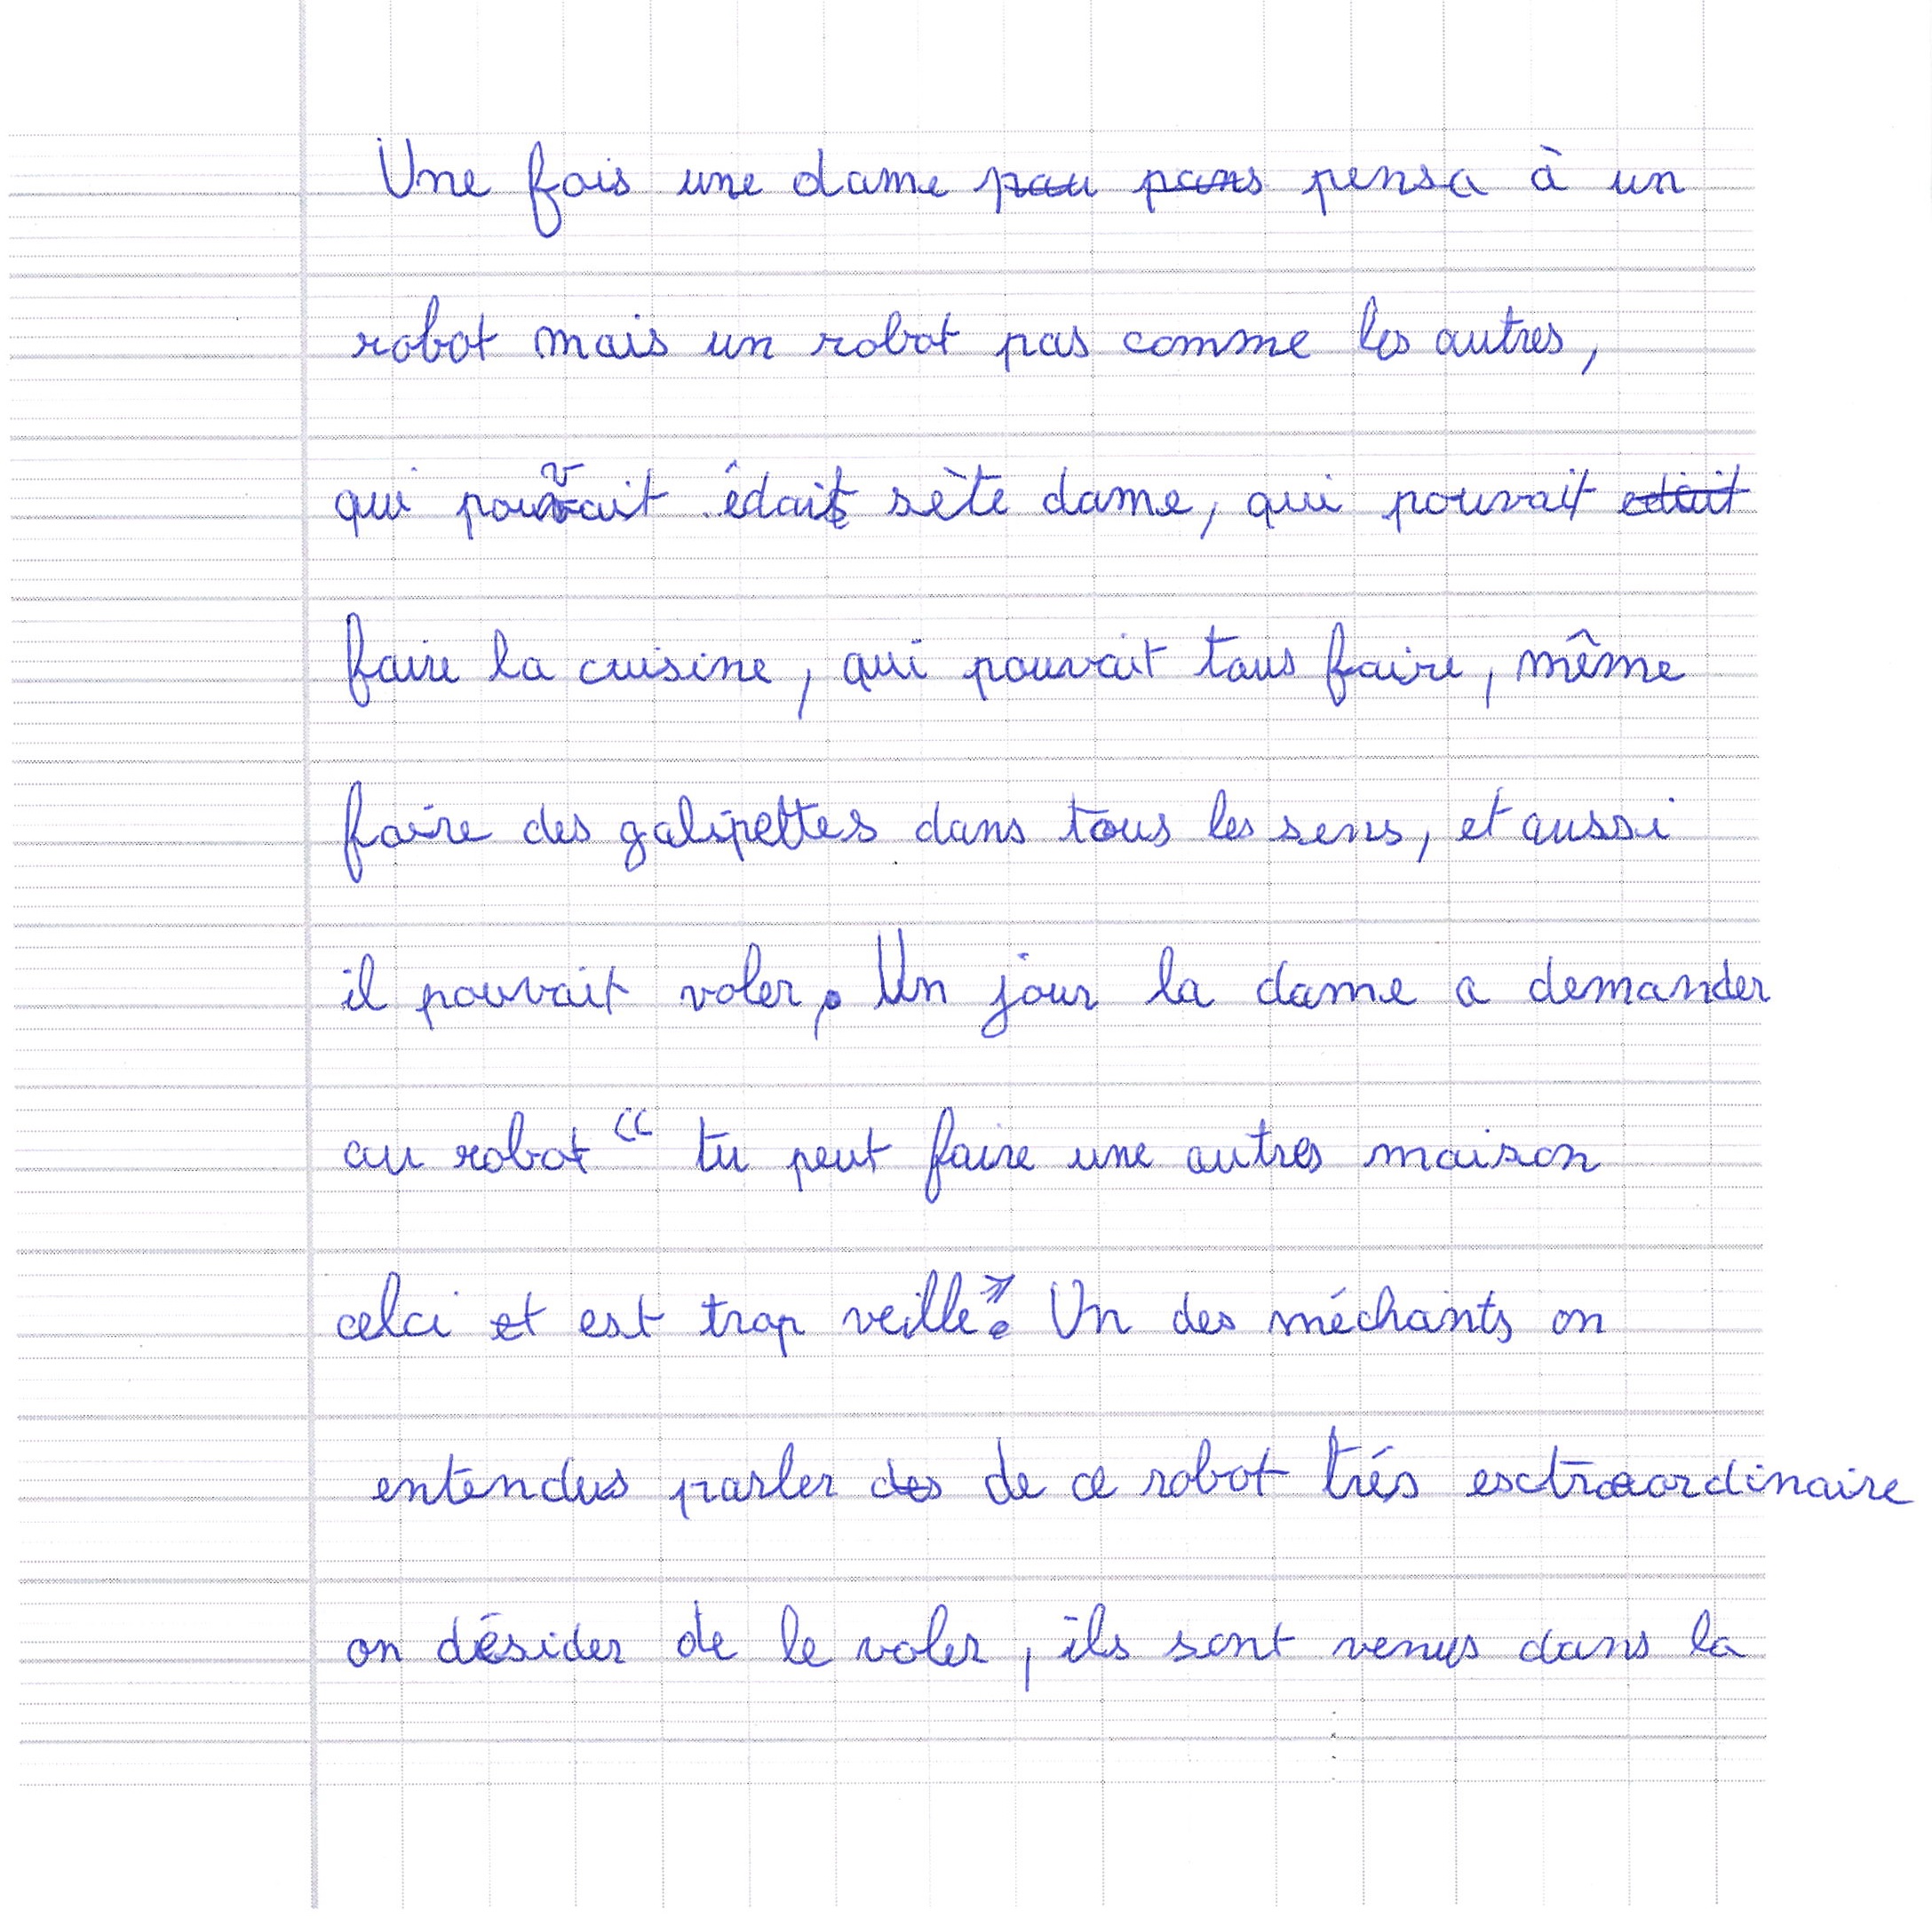 Une fois une dame pau pans pensa à un
robot mais un robot pas comme les autres,
qui pouvait êdait sète dame, qui pouvait edait
faire la cuisine, qui pouvait tous faire, même
faire des galipettes dans tous les sens, et aussi
il pouvait voler. Un jour la dame a demander
au robot “ tu peut faire une autres maison
celci et est trop veille”. Un des méchants on
entendus parler des de ce robot trés esctraordinaire
on désider de le voler, ils sont venus dans la